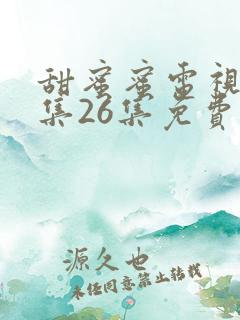 甜蜜蜜電視
集26集免費
源久也
未经同意禁止转载